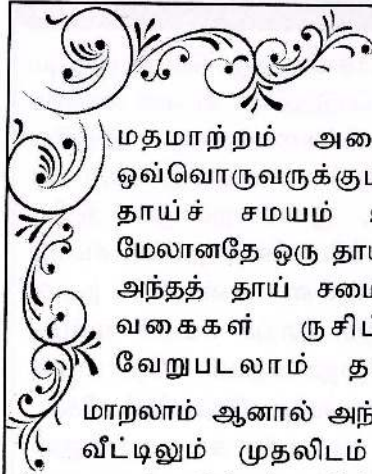 மதமாற்றம்
ஒவ்வொருவருக்கும்
தாய்ச் சமயம்
மேலானதே ஒரு
அந்தத் தாய்
வகைகள்
வேறுபடலாம்
மாறலாம் ஆனால்
வீட்டிலும் முதலிடம்